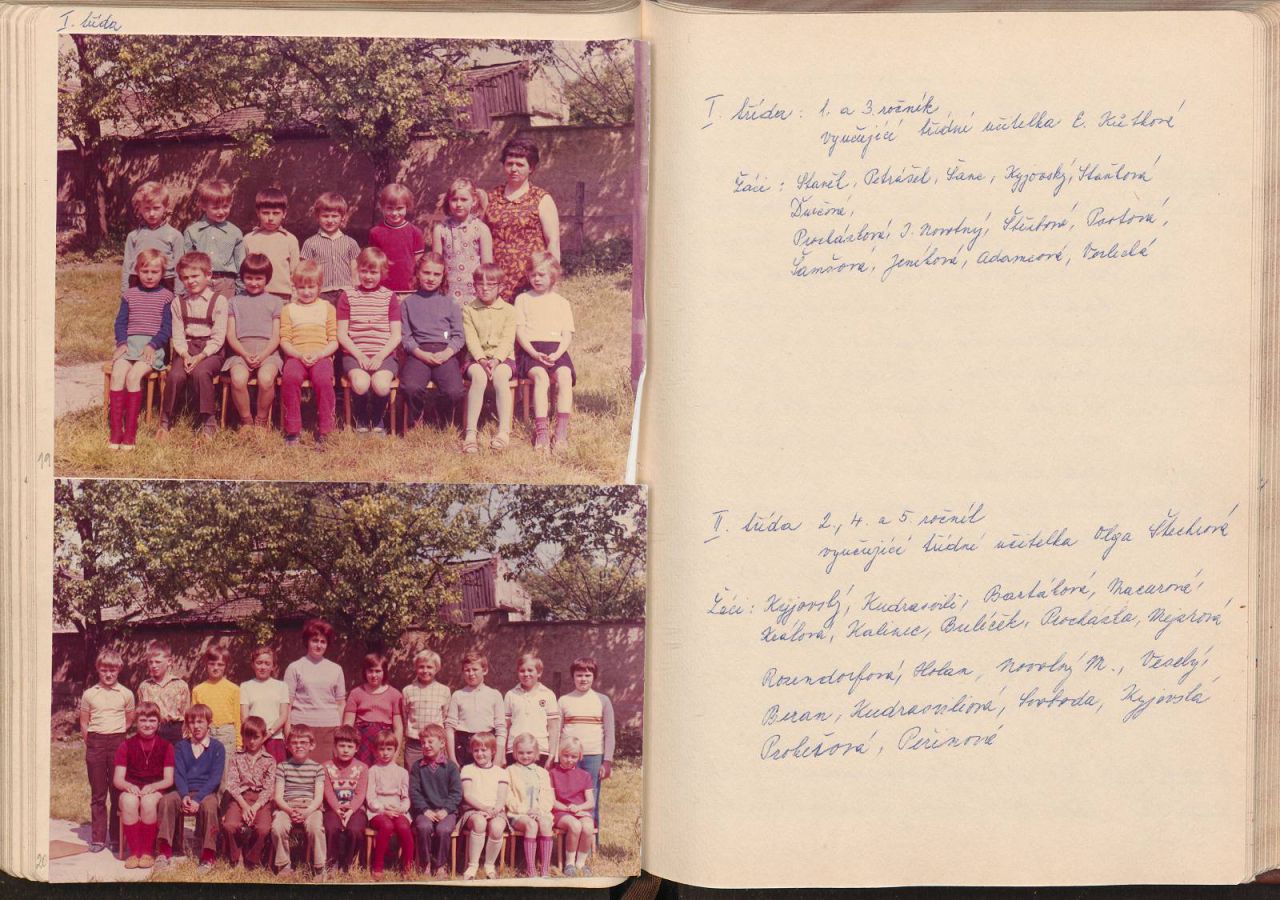 I. třída
19
20
I. třída : 1. a 3. ročník
vyučující třídní učitelka E. Kůtková
Žáci : Staněk, Petrášek, Šanc, Kyjovský, Staňková
Ďurčová,
Procházková, J. Novotný, Štěrbová, Partová,
Šamšová, Jeníková, Adamcová, Vorlická
II. třída 2., 4. a 5. ročník
vyučující třídní učitelka Olga
Žáci : Kyjovský, Bartáková, Macurová,
Králová, Kalinec, Bulíček, Procházka,
Rozendorfová, Holan, Novotný M., Veselý,
Beran, Svoboda, Kyjovská
Peřinová